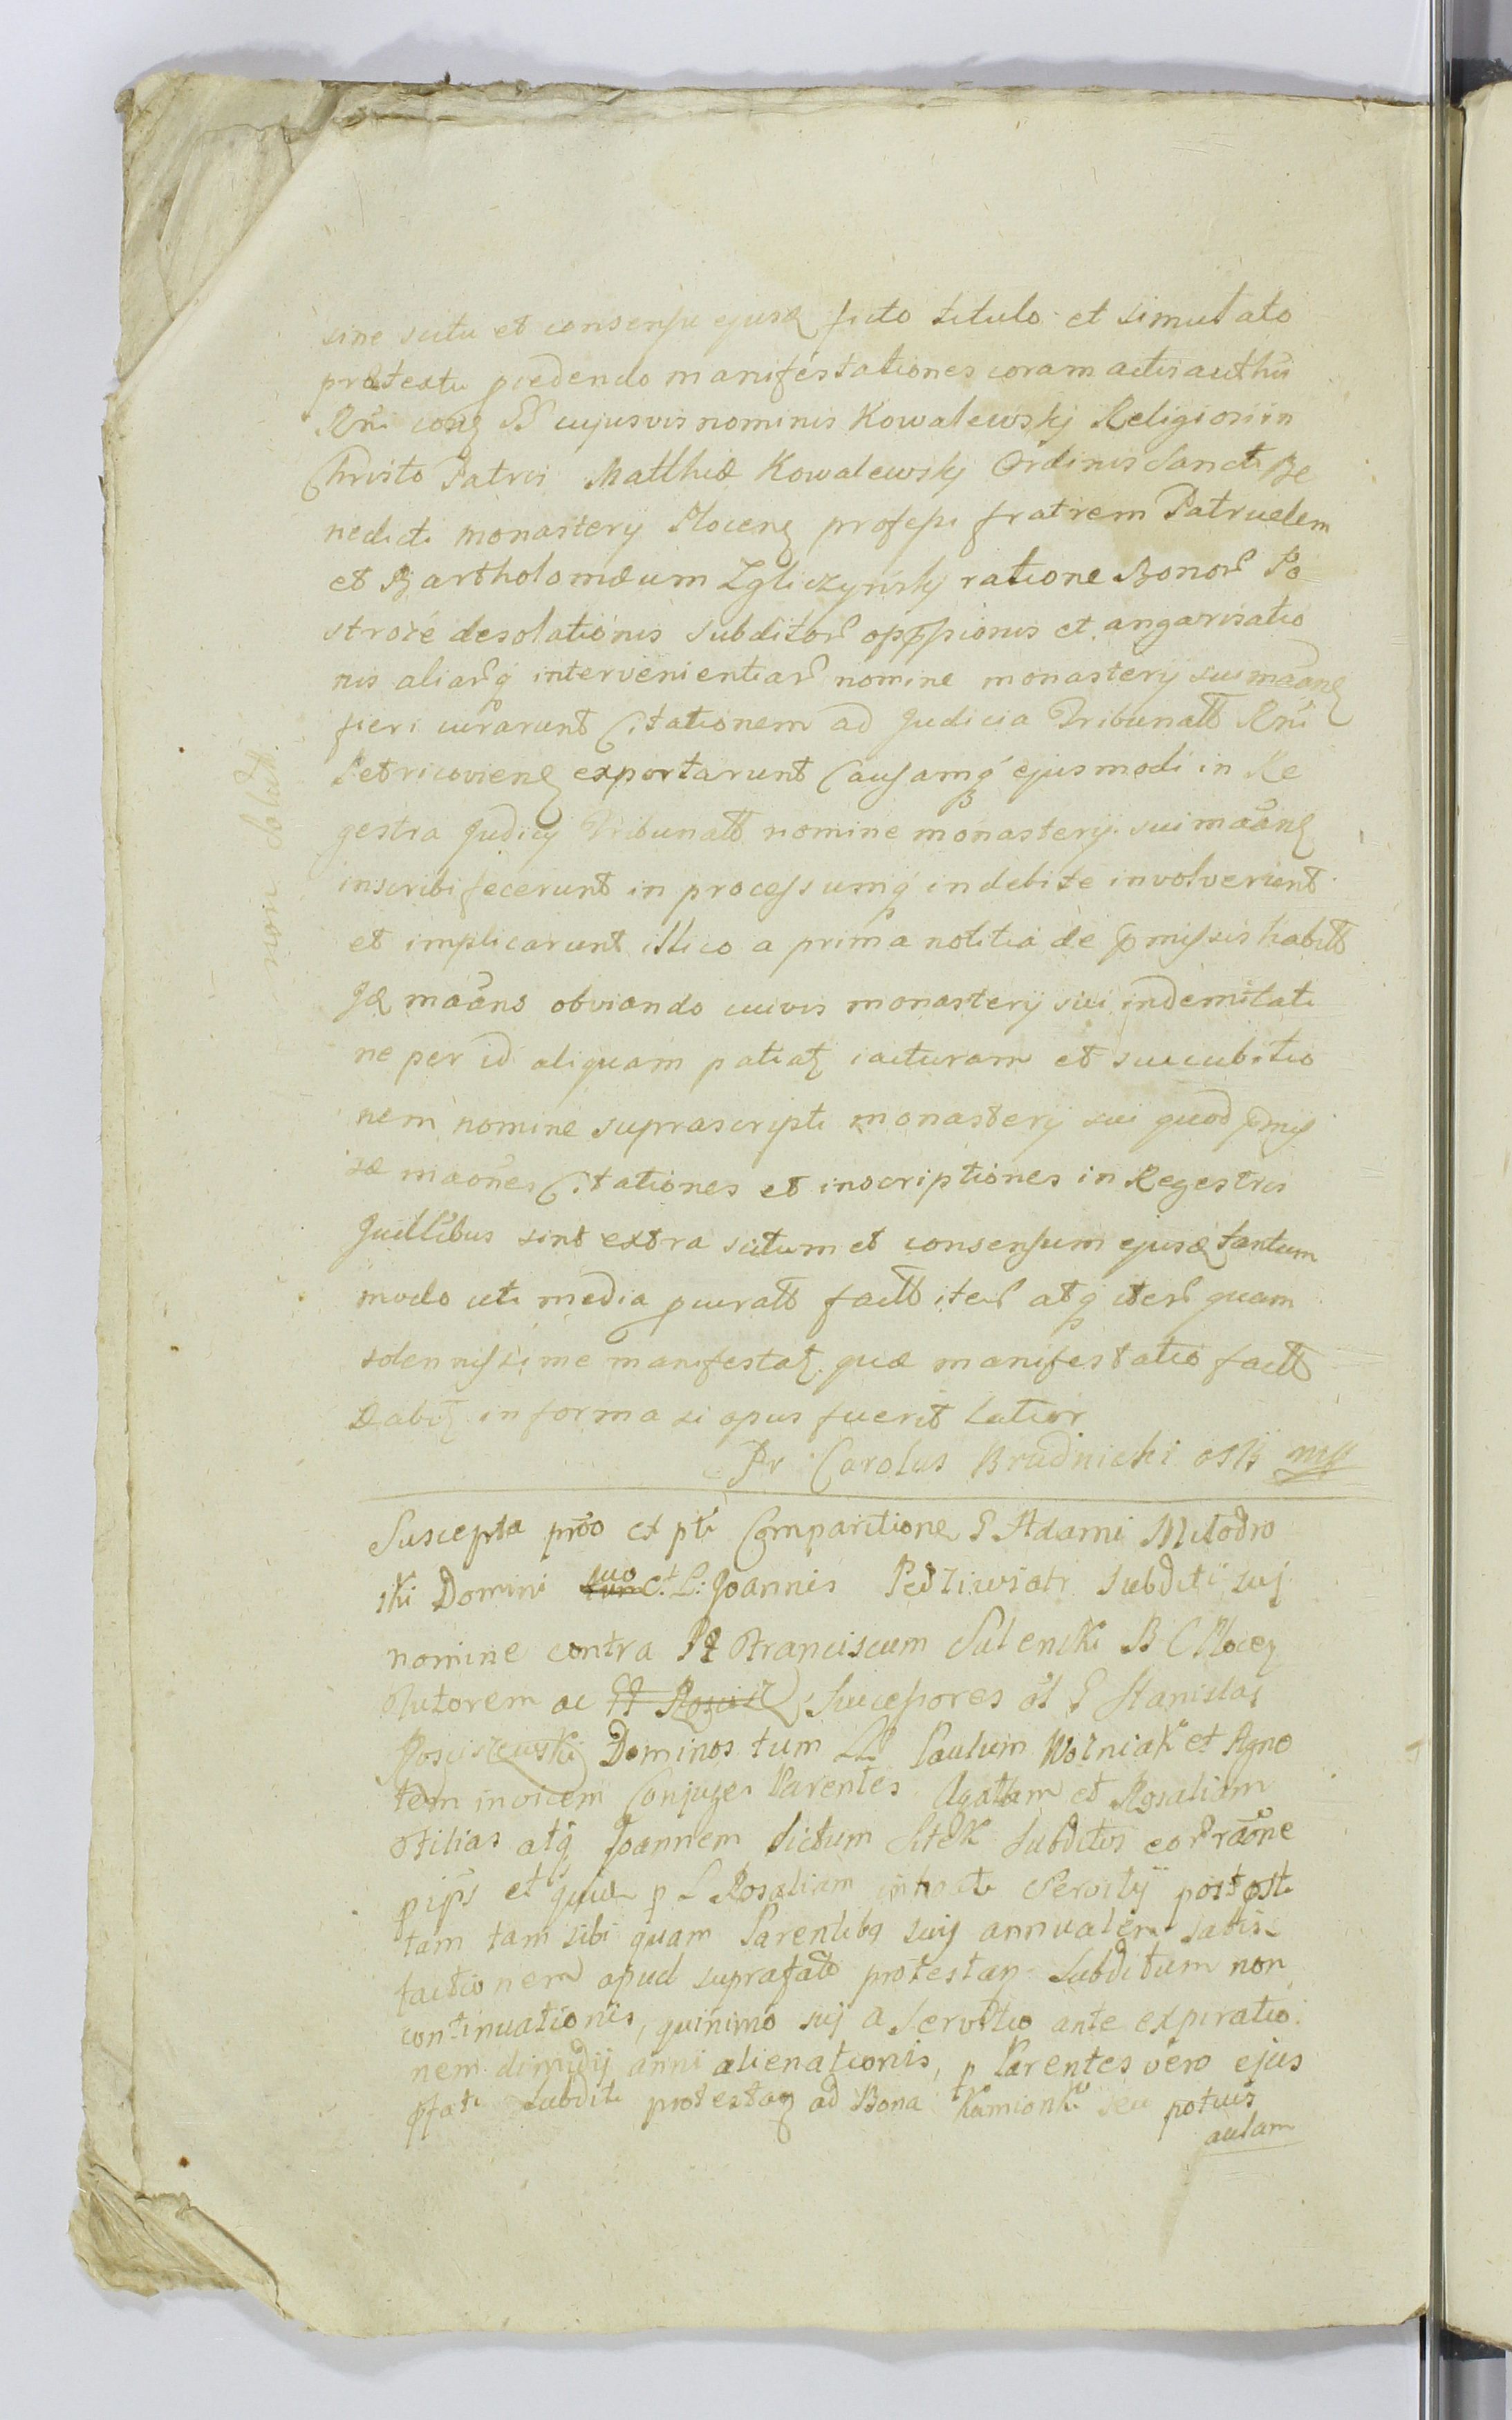 sine scitu et consensu ejusd ficto titulo et simulato
prætextu pcedendo manifestationes coram actis authñ
Rñi conq P cujusvis nominis Kowalewskj Religiosi in
Christo Patris Matthiæ Kowalewskj Ordinis Sancti Be
nedicti monasterij Plocenq professi fratrem Patruelem
et Bartholomæum Zgliczynskj ratione Bonor Po
stroże desolationis subditor oppsionis et angarisatio
nis aliarq intervenientiar nomine monasterij sui mãanq
fieri curarunt Citationem ad Judicia Tribunalt Rñi
Petricovienq exportarunt Causamq ejusmodi in Re
gestra Judicij Tribunalt nomine monasterij sui mãanq
inscribi fecerunt in processumq indebite involverunt
et implicarunt illico a prima notitia de pmissis habitt
Jd mãans obviando cuivis monasterij sui indemitati
ne per id aliquam patiatq iacturam et succubitio
nem nomine suprascripti monasterij sui quod pmis
sæ mãones Citationes et inscriptiones in Regestris
Judlibus sint extra scitum et consensum ejusd tantum
modo uti media pcuratt factt iter atq iter quam
solennissime manifestatq quæ manifestatio factt
dabitq in forma si opus fuerit latior
Pr Carolus Brudnicki OSB mp
non oblatt.
Suscepta prõo et pti Comparitione P Adami Młodro
ski Domini suo et L: Joannis Pedziwiatr Subditi suj
nomine contra P Franciscum Sulencki B C Plocenq
Tutorem ac Successores ol P Stanislai
Rosciszewski Dominos tum LL Paulum Wozniak et Agne
tem invicem Conjuges Parentes Agatam et Rosaliam
Filias atq Joannem dictum Sitek Subditos eor rãone
pipis et quia p L Rosaliam Servitij post
tam tam sibi quam Parentibq suis annualem satis-
factionem apud suprafatt protestanq Subditum non
continuationis, quinimo suj a Servitio ante expiratio
nem dimidij anni alienationis, p Parentes vero ejus
pfati subditi protestanq ad Bona Kamionki seu potius
aulam